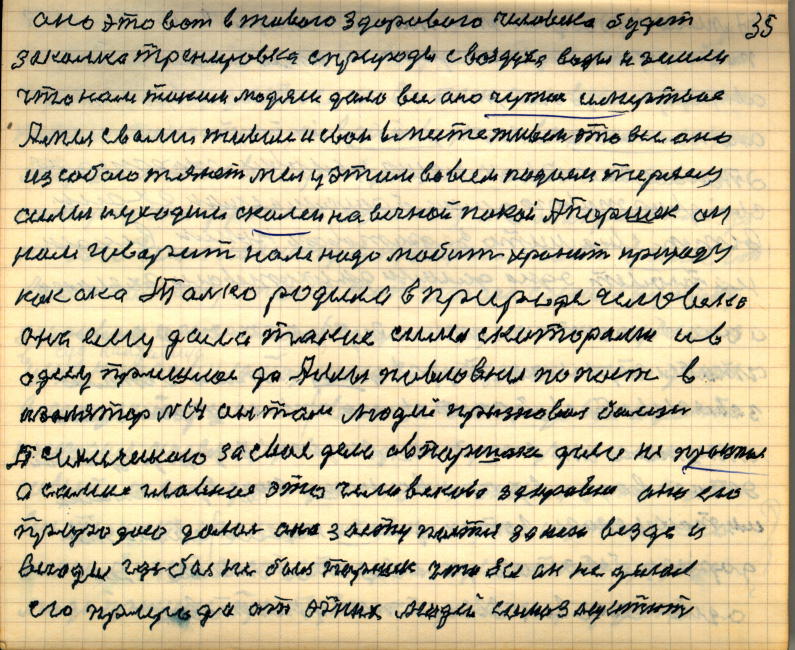 35
оно это вот в живого здорового человека будет
закалка тренировка с природы с воздуха воды и земли
что нам таким людям дало все оно чужое и мертвое
А мы с вами живем и свои вместе живем это все оно
из собою тянет мы у этим во всем подием теряем
силы и уходим с колеи на вечной покой А Паршек он
нам говарит нам надо любит хранит природу
как она только родила в природе человека
она ему дала такие силы с каторами и в
одесу пришлос до Анны павловны попаст в
изолятор №14 он там людей призновал болни
Психическаго за свое дело а в паршака дело не
а самие главное это человеково здоровия оно его
природаю далас она за ету пойти за нем везде и
всюды где бы не был паршек что бы он не делал
его природа от этих людей сама защитит